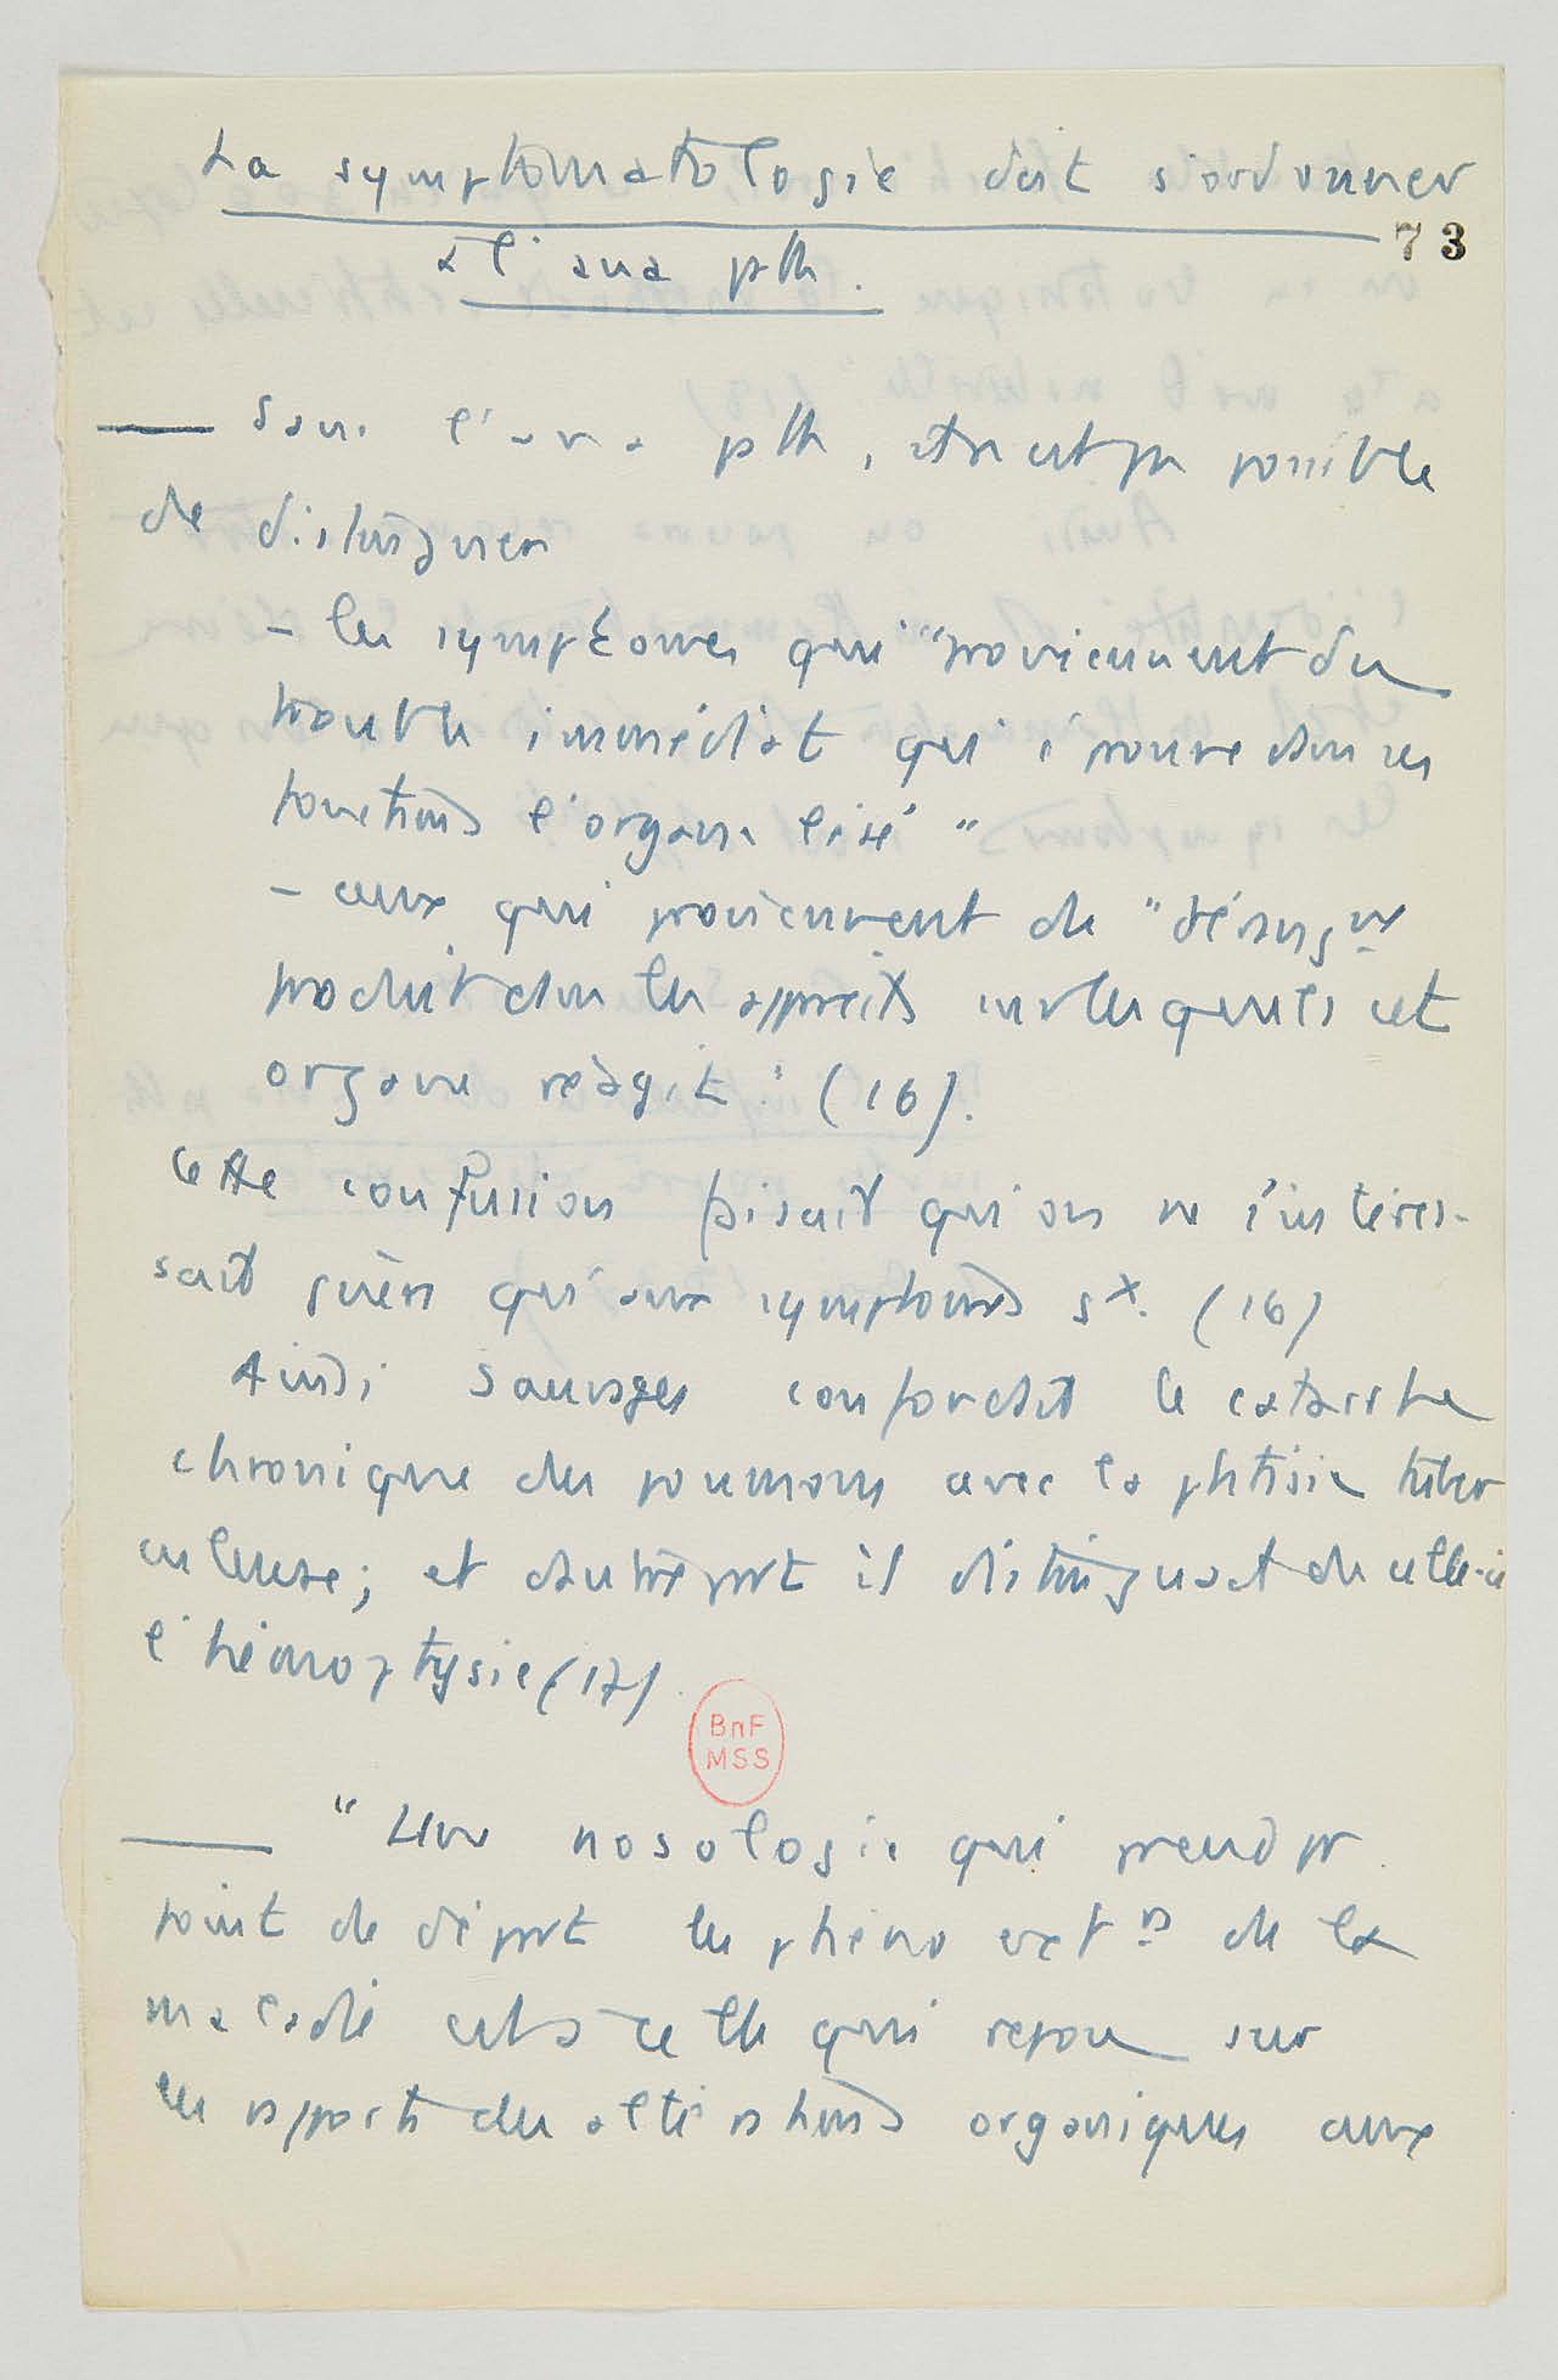 La symptomatologie doit s'ordonner
73
à l'ana pth.
— Sans l'ana pth, il n'est pas possible
de distinguer
- les symptomes qui "proviennent du
trouble immédiat qu'éprouve dans ses
fonctions l'organe lésé"
- ceux qui proviennent de "dérang nt
produit dans les appareils sur lesquels cet
organe réagit" (16).
Cette confusion faisait qu'on ne s'intéres-
sait guère qu'aux symptomes gx. (16)
Ainsi Sauvages confondait le catarrhe
chronique des poumons avec la phtisie tuber
culeuse; et d'autre part il distinguait de celle-ci
l'hémoptysie (17)
BnF
MSS
— "Une nosologie qui prend pr
point de départ les phéno ext rs de la
maladie est à celle qui repose sur
les rapports des altérations organiques aux